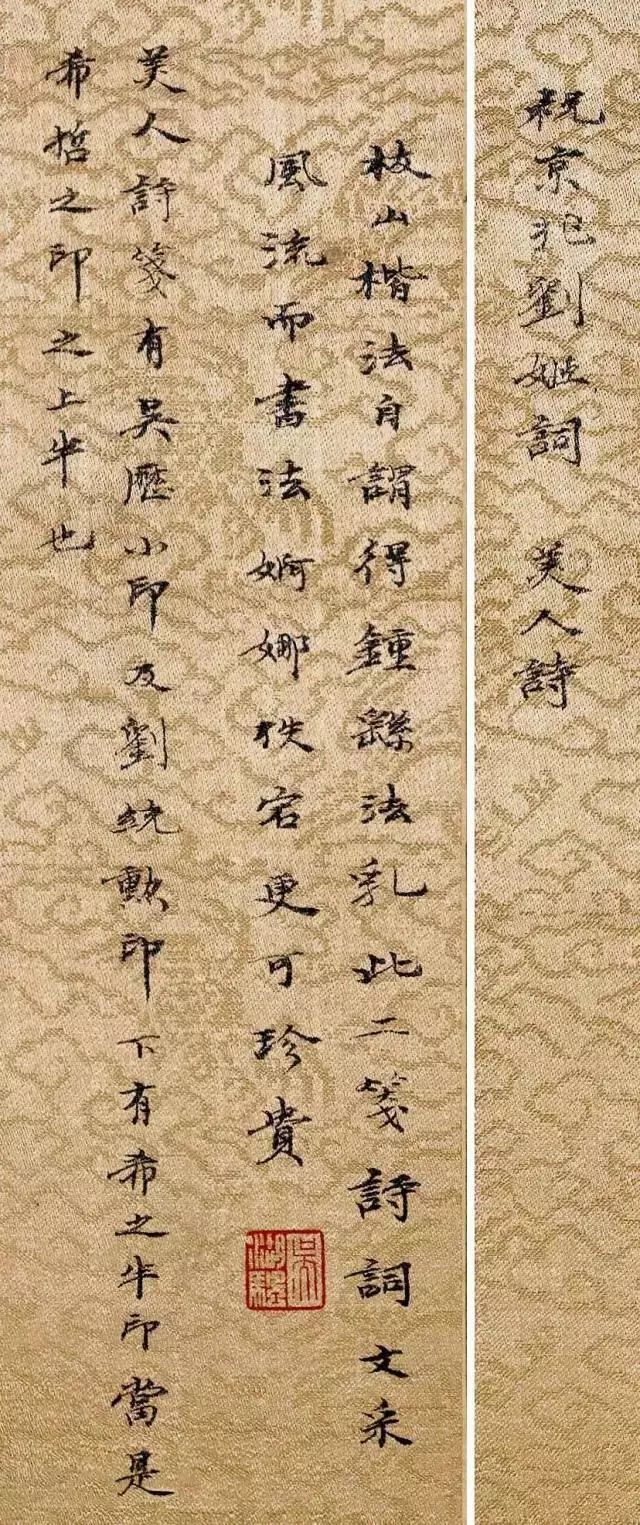 祝京兆劉姬詞 美人詩
枝山楷法自謂得鍾繇法乳此二箋詩詞文采
風流而書法婀娜秩宕更可珍貴
吳湖驋
美人詩箋有吳歷小印及劉統勳印 下有希之半印當是
希哲之印之上半也